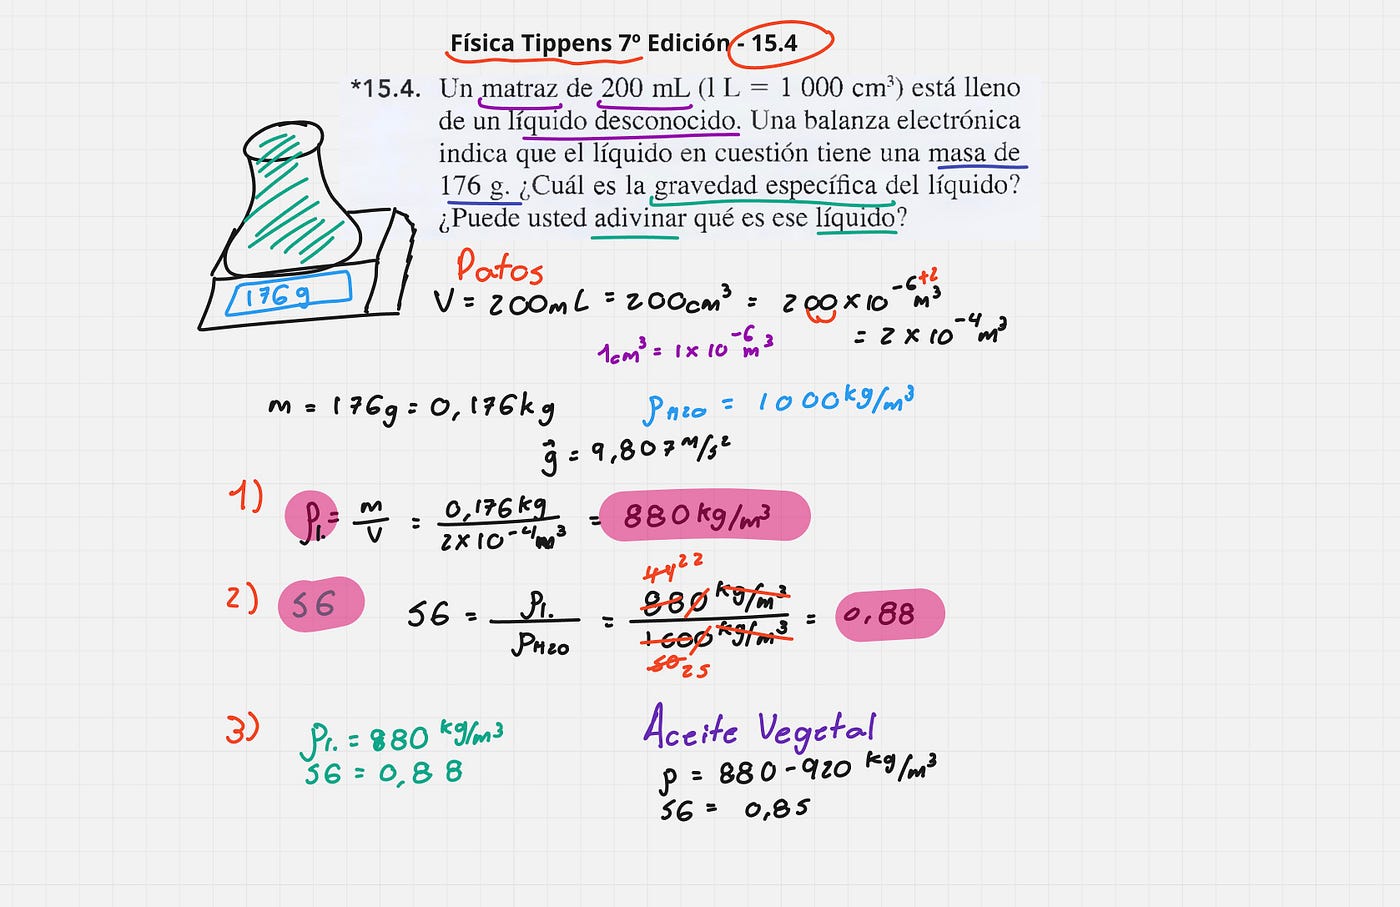 Física Tippens 7º Edición - 15.4
*15.4. Un matraz de 200 mL (1 L = 1 000 cm³) está lleno
de un líquido desconocido. Una balanza electrónica
indica que el líquido en cuestión tiene una masa de
176 g. ¿Cuál es la gravedad específica del líquido?
¿Puede usted adivinar qué es ese líquido?
176g
Datos
V = 200mL = 200cm³ = 200x10⁻⁶⁺² m³
= 2x10⁻⁴m³
1cm³ = 1x10⁻⁶ m³
m = 176g = 0,176kg
ρH2O = 1000kg/m³
g = 9,807 m/s²
1) ρl. = m/V = 0,176kg / 2x10⁻⁴m³ = 880kg/m³
2) SG SG = ρl. / ρH2O = 880 kg/m³ / 1000 kg/m³ = 0,88
44 22
50 25
3) ρl. = 880 kg/m³
SG = 0,88
Aceite Vegetal
ρ = 880-920 kg/m³
SG = 0,85